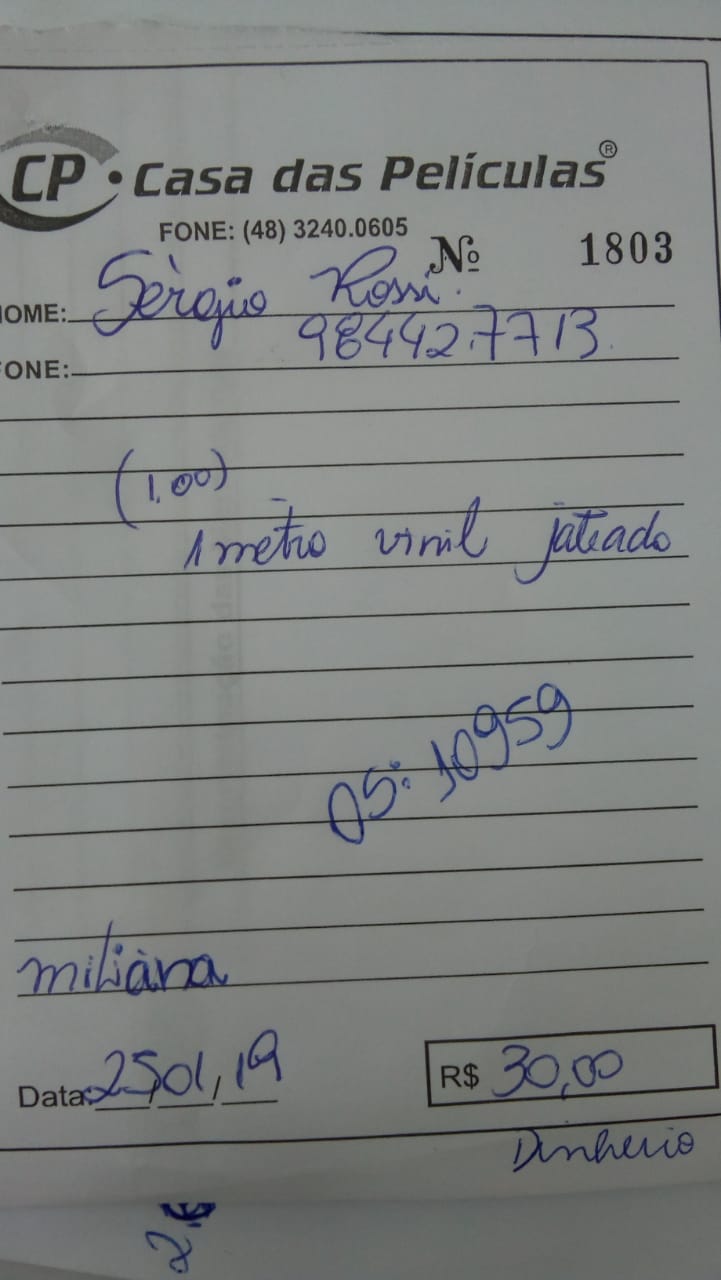 CP • Casa das Películas®
FONE: (48) 3240.0605
Nº 1803
NOME: Sèrgio Rossi.
FONE: 98442.7713.
(1.00)
1 metro vinil jateado
OS: 10959
miliana
Data: 25/01/19
R$ 30,00
Dinheiro